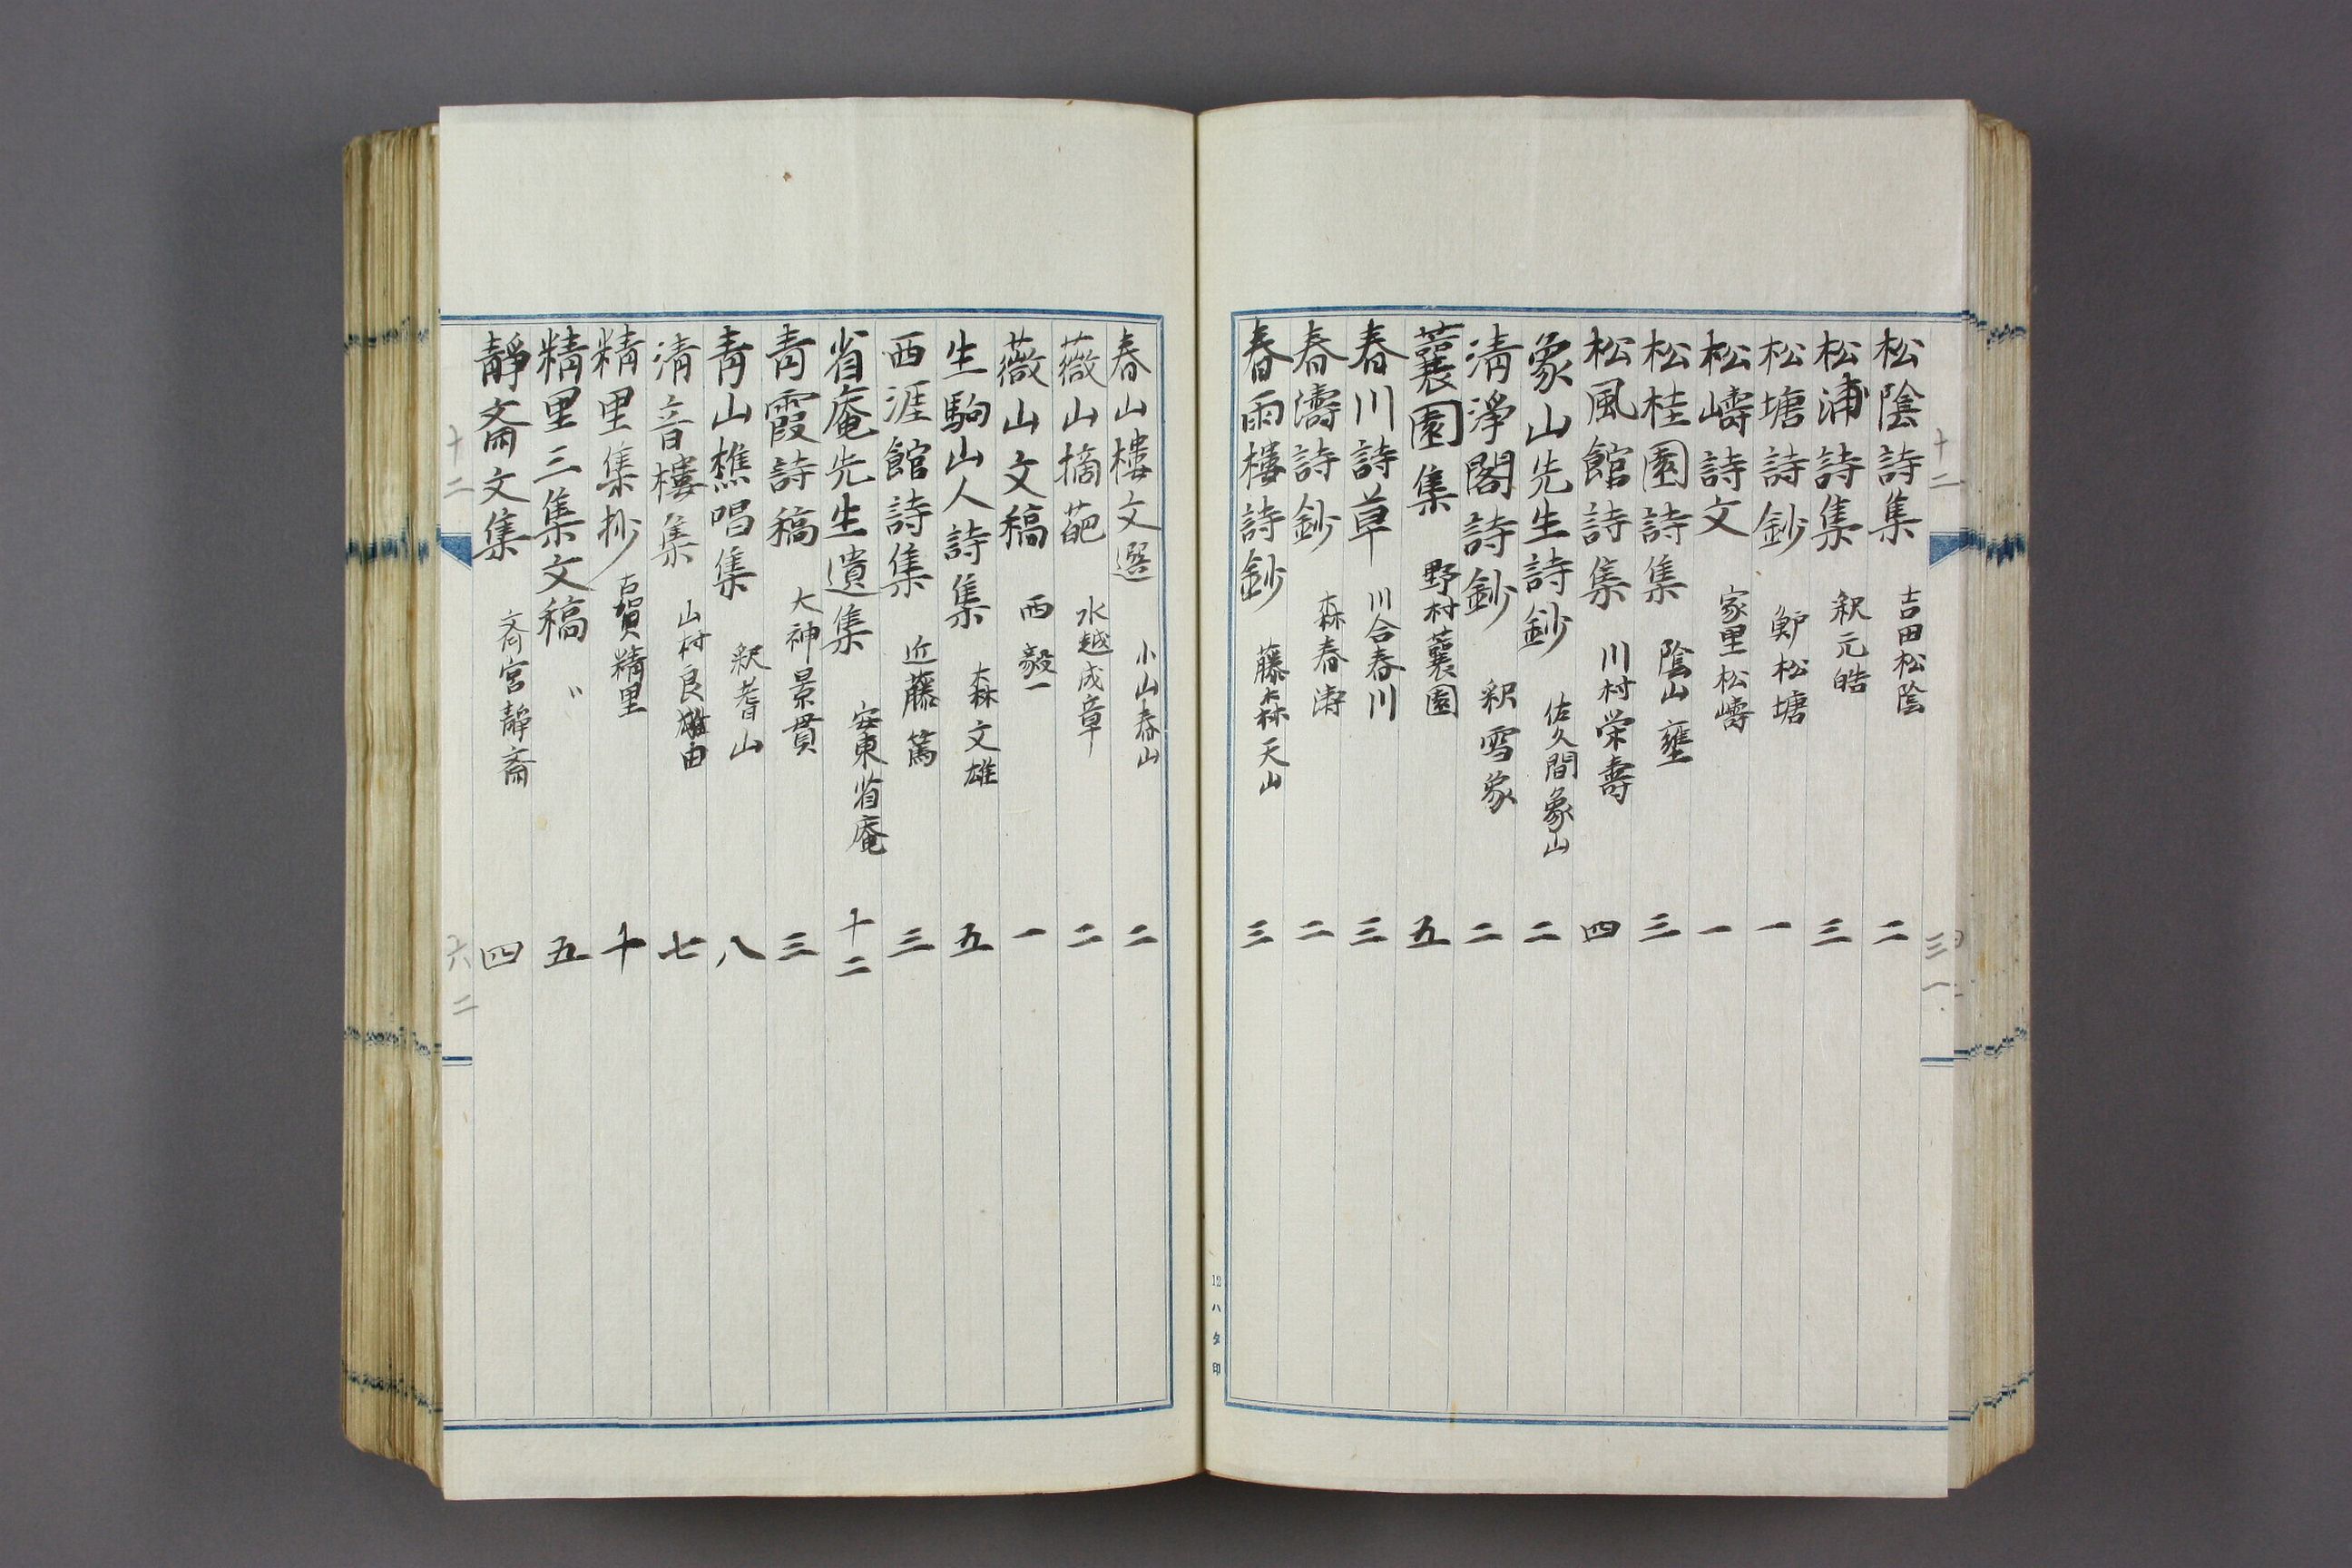 松陰詩集 吉田松陰 二
松浦詩集 釈元皓 三
松塘詩鈔 鱸松塘 一
松嶹詩文 家里松嶹 一
松桂園詩集 陰山壅 三
松風館詩集 川村栄壽 四
象山先生詩鈔 佐久間象山 二
清淨閣詩鈔 釈雪象 二
蘘園集 野村蘘園 五
春川詩草 川合春川 三
春濤詩鈔 森春濤 二
春雨樓詩鈔 藤森天山 三
十二
三一
12ハタ印
春山樓文選 小山春山 二
薇山摘葩 水越成章 二
薇山文稿 西毅一 一
生駒山人詩集 森文雄 五
西涯館詩集 近藤篤 三
省庵先生遺集 安東省庵 十二
青霞詩稿 大神景貫 三
青山樵唱集 釈耆山 八
清音樓集 山村良由 七
精里集抄 古賀精里 十
精里三集文稿 〃 五
靜齋文集 斎宮靜齋 四
十二
六二